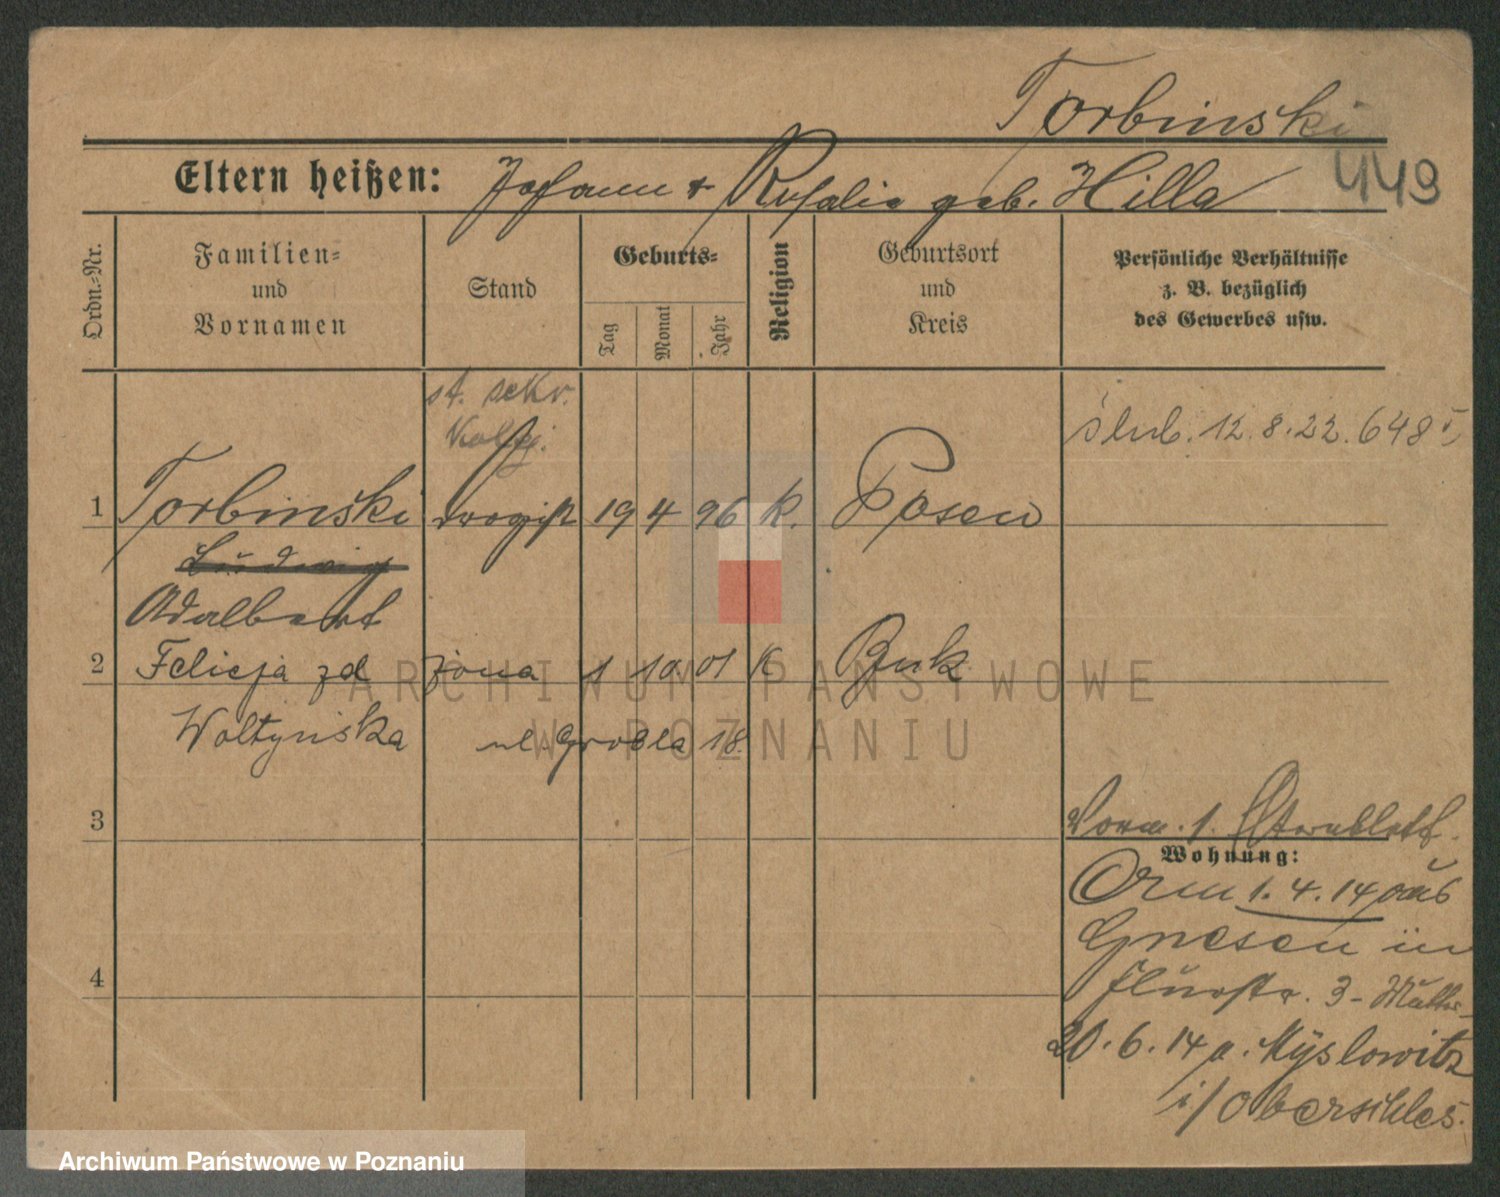 Torbinski
449
Eltern heißen: Johann + Rosalie geb. Hilla
Ordn.-Nr.
Familien-
und
Vornamen
Stand
Geburts-
Tag
Monat
Jahr
Religion
Geburtsort
und
Kreis
Persönliche Verhältnisse
z. B. bezüglich
des Gewerbes usw.
st. sekr.
ślub. 12.8.22. 648
1 Torbinski Drogist 19 4 96 K. Posen
Ludwig
Adalbert
2 Felicja zd żona 1 10 01 K Buk
Woltyńska ul Grobla 18.
3
Wohnung:
1.4.14 aus
Gnesen in
Flurstr. 3 - Mutter
4
20.6.14 a. Myslowitz
i/Oberschles.
ARCHIWUM PAŃSTWOWE
W POZNANIU
Archiwum Państwowe w Poznaniu